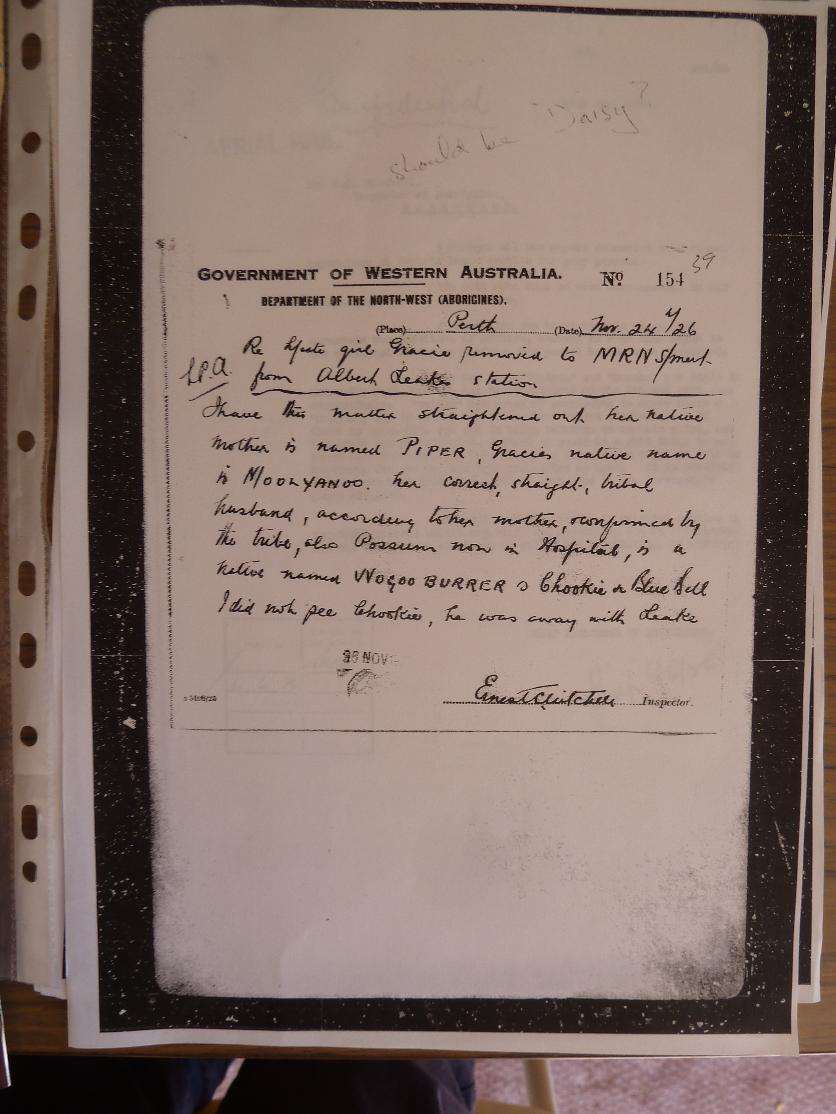 should be "Daisy"?
39
GOVERNMENT OF WESTERN AUSTRALIA. No 154
DEPARTMENT OF THE NORTH-WEST (ABORIGINES).
(Place) Perth (Date) Nov. 24 /26
Re H/caste girl Gracie removed to MRN S/ment
from Albert Leakes station
I have this matter straightened out her native
mother is named PIPER, Gracies native name
is MOOLYANOO. her correct, straight, tribal
husband, according to her mother, confirmed by
the tribe, also Possum now in Hospital, is a
native named WOGOO BURRER Chookie or Blue Bell
I did not see Chookie, he was away with Leake
26 NOV
Ernest Mitchell Inspector.